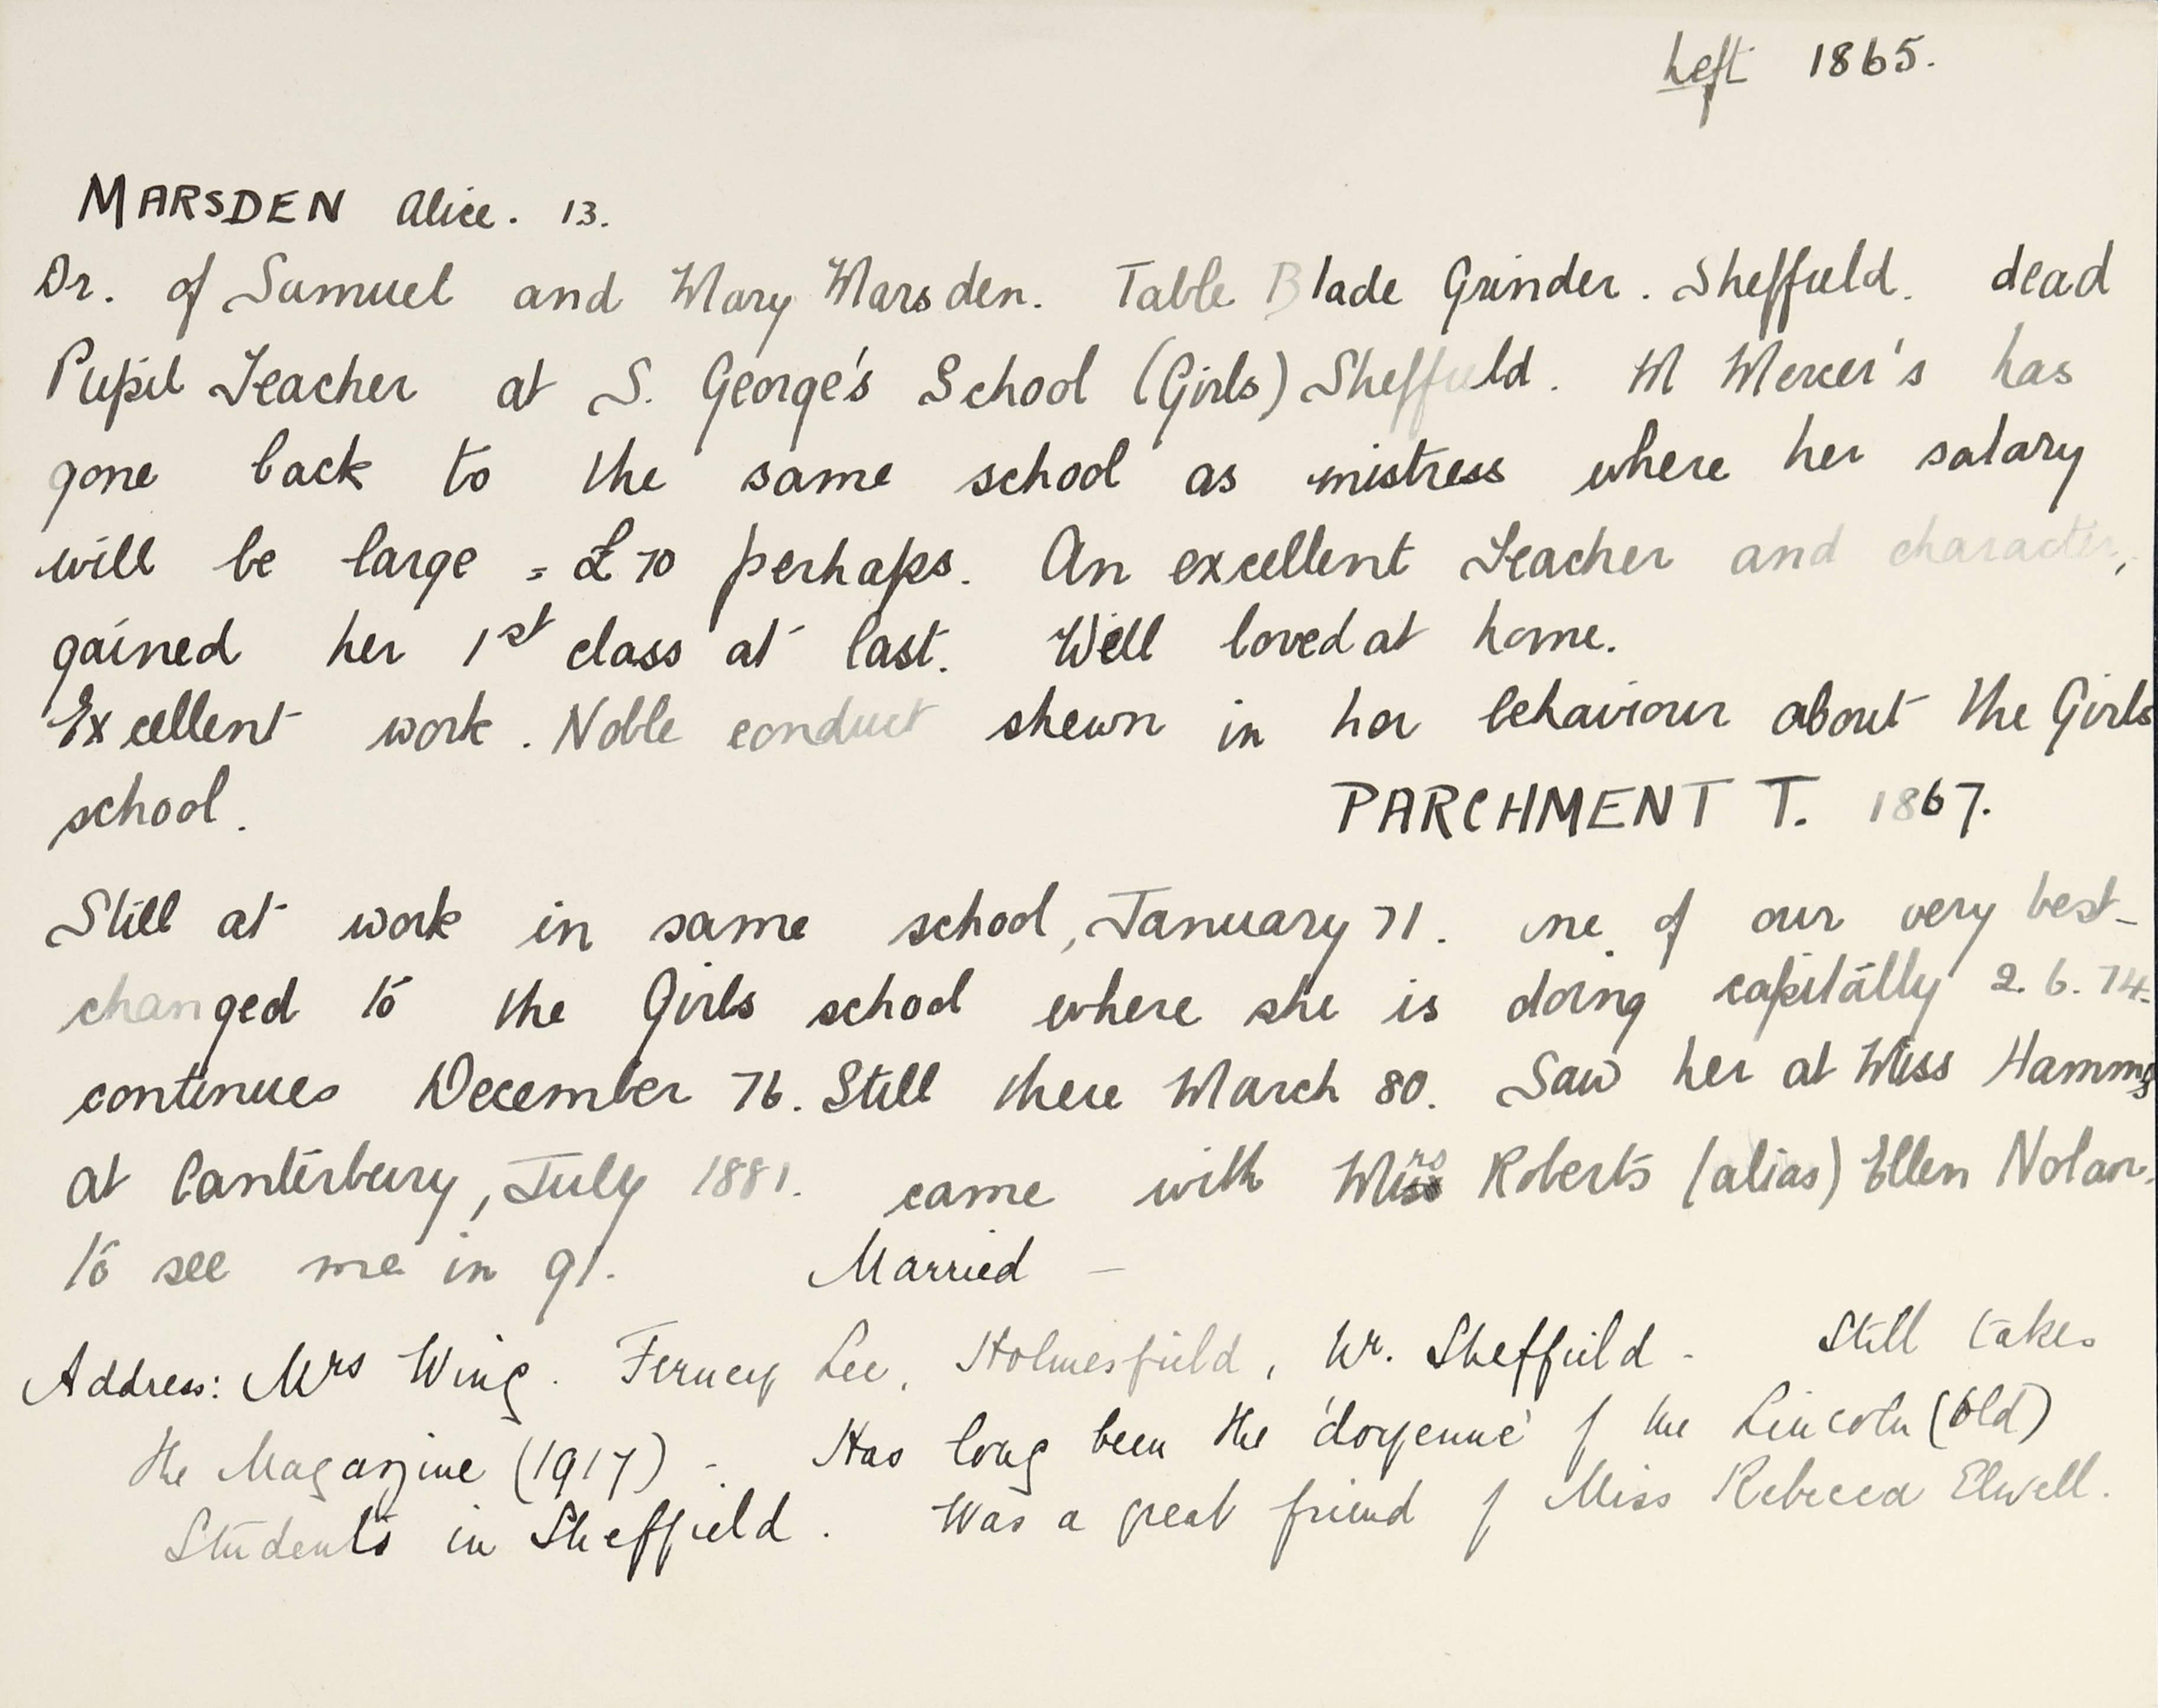 Left 1865.
MARSDEN Alice. 13.
Dr. of Samuel and Mary Marsden. Table Blade Grinder. Sheffield. dead
Pupil Teacher at S. George's School (Girls) Sheffield. M Mercer's has
gone back to the same school as mistress where her salary
will be large = £70 perhaps. An excellent Teacher and character,
gained her 1st class at last. Well loved at home.
Excellent work. Noble conduct shewn in her behaviour about the Girls
school.
PARCHMENT T. 1867.
Still at work in same school, January 71. one of our very best-
changed to the Girls school where she is doing capitally 2.6.74.
continues December 76. Still there March 80. Saw her at Miss Hamms
at Canterbury, July 1881. came with Mrs Roberts (alias) Ellen Nolan.
to see me in 91. Married —
Address: Mrs Wing. Ferney Lee, Holmesfield, Nr. Sheffield - Still takes
the Magazine (1917) -. Has long been the 'doyenne' of the Lincoln (Old)
Students in Sheffield. Was a great friend of Miss Rebecca Elwell.